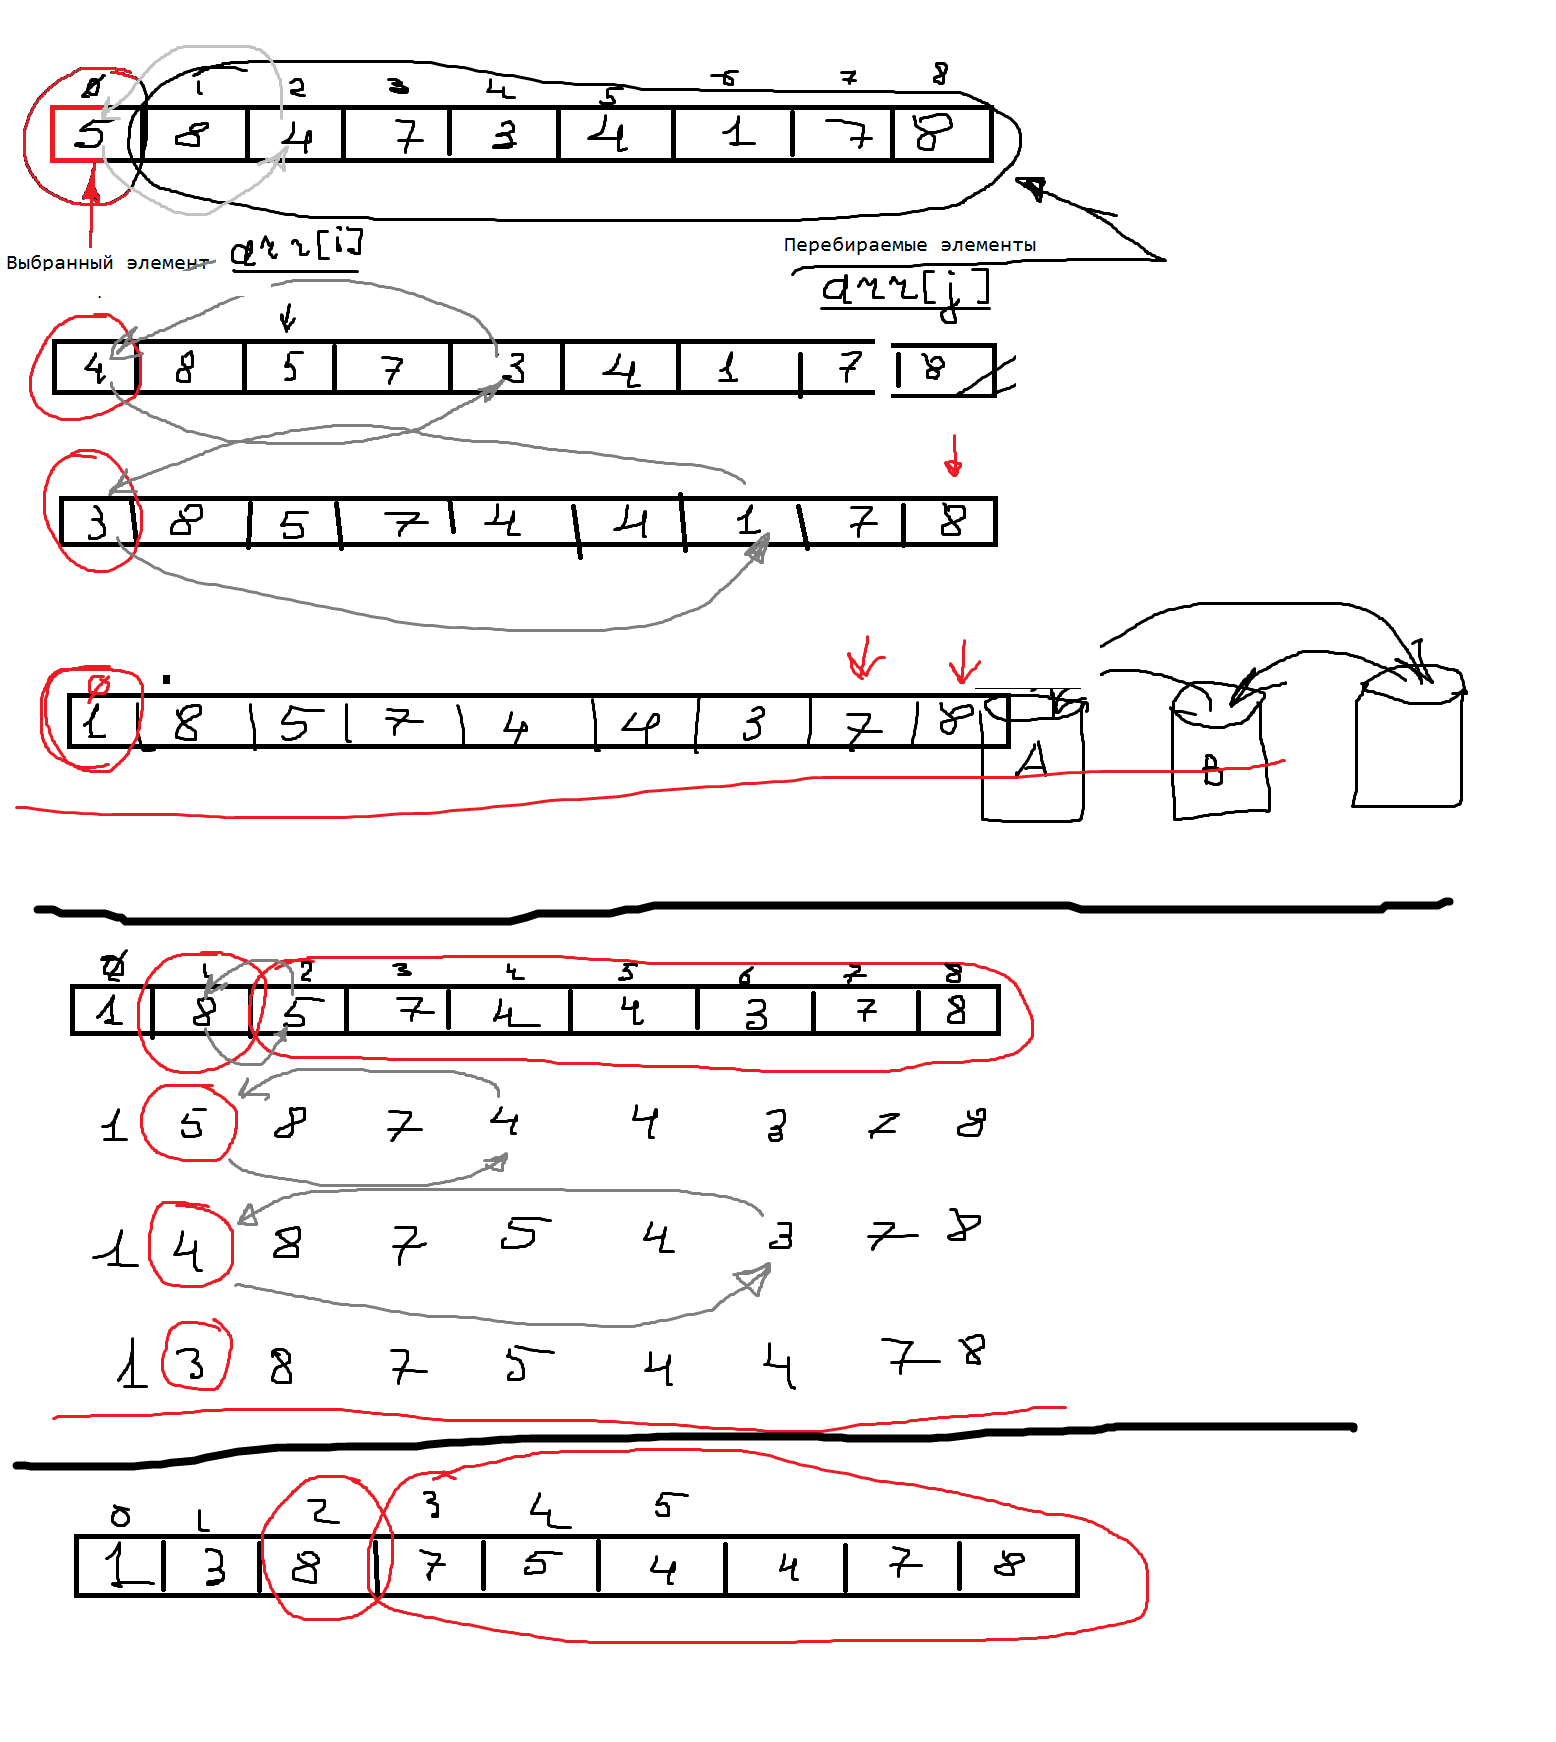 0 1 2 3 4 5 6 7 8
5 8 4 7 3 4 1 7 8
Выбранный элемент arr[i]
Перебираемые элементы
arr[j]
4 8 5 7 3 4 1 7 8
3 8 5 7 4 4 1 7 8
0
1 8 5 7 4 4 3 7 8
A B
0 1 2 3 4 5 6 7 8
1 8 5 7 4 4 3 7 8
1 5 8 7 4 4 3 7 8
1 4 8 7 5 4 3 7 8
1 3 8 7 5 4 4 7 8
0 1 2 3 4 5
1 3 8 7 5 4 4 7 8